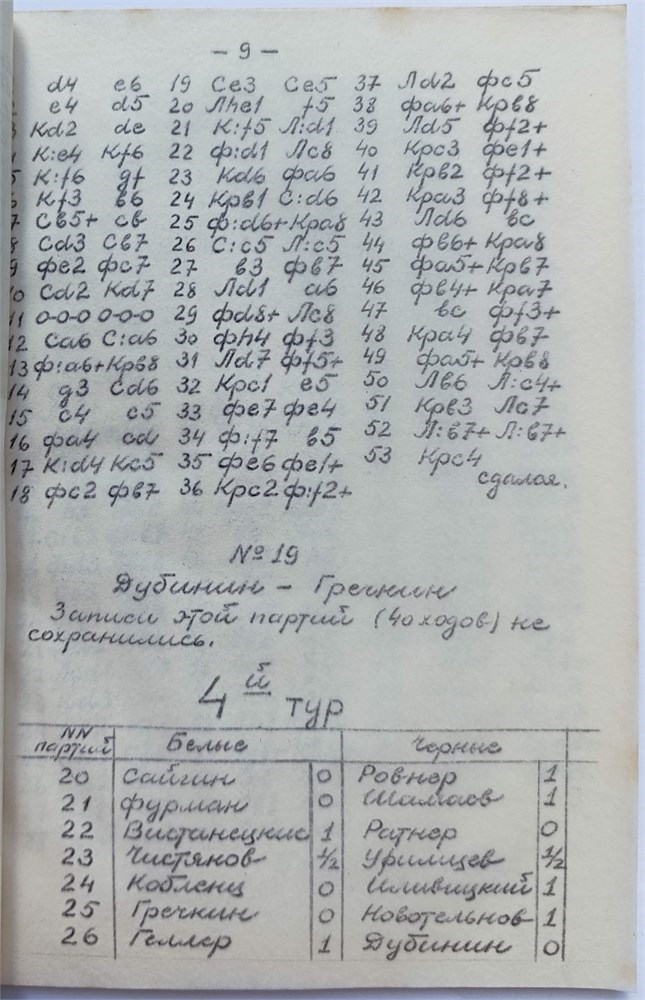 – 9 –
d4 e6 19 Се3 Се5 37 Лd2 фс5
2 е4 d5 20 Лhe1 f5 38 фа6+ Крв8
3 Кd2 de 21 К:f5 Л:d1 39 Лd5 фf2+
4 К:е4 Кf6 22 ф:d1 Лс8 40 Крс3 фе1+
5 К:f6 gf 23 Кd6 фа6 41 Крв2 фf2+
6 Кf3 в6 24 Крв1 С:d6 42 Кра3 фf8+
7 Св5+ св 25 ф:d6+ Кра8 43 Лd6 вс
8 Сd3 Св7 26 С:с5 Л:с5 44 фв6+ Кра8
9 фе2 фс7 27 в3 фв7 45 фа5+ Крв7
10 Сd2 Кd7 28 Лd1 а6 46 фв4+ Кра7
11 0-0-0 0-0-0 29 фd8+ Лс8 47 вс фf3+
12 Са6 С:а6 30 фh4 фf3 48 Кра4 фв7
13 ф:а6+ Крв8 31 Лd7 фf5+ 49 фа5+ Крв8
14 g3 Сd6 32 Крс1 е5 50 Лв6 Л:с4+
15 с4 с5 33 фе7 фе4 51 Крв3 Лс7
16 фа4 cd 34 ф:f7 в5 52 Л:в7+ Л:в7+
17 К:d4 Кс5 35 фе6 фе1+ 53 Крс4
18 фс2 фв7 36 Крс2 ф:f2+ сдалоя.
№ 19
Дубинин – Гречкин
Записи этой партий (40 ходов) не
сохранились.
4й тур
NN партий Белые Черные
20 Сайгин 0 Ровнер 1
21 Фурман 0 Шамаев 1
22 Вистанецкис 1 Ратнер 0
23 Чистяков 1/2 Уфимцев 1/2
24 Кобленц 0 Иливицкий 1
25 Гречкин 0 Новотельнов 1
26 Геллер 1 Дубинин 0